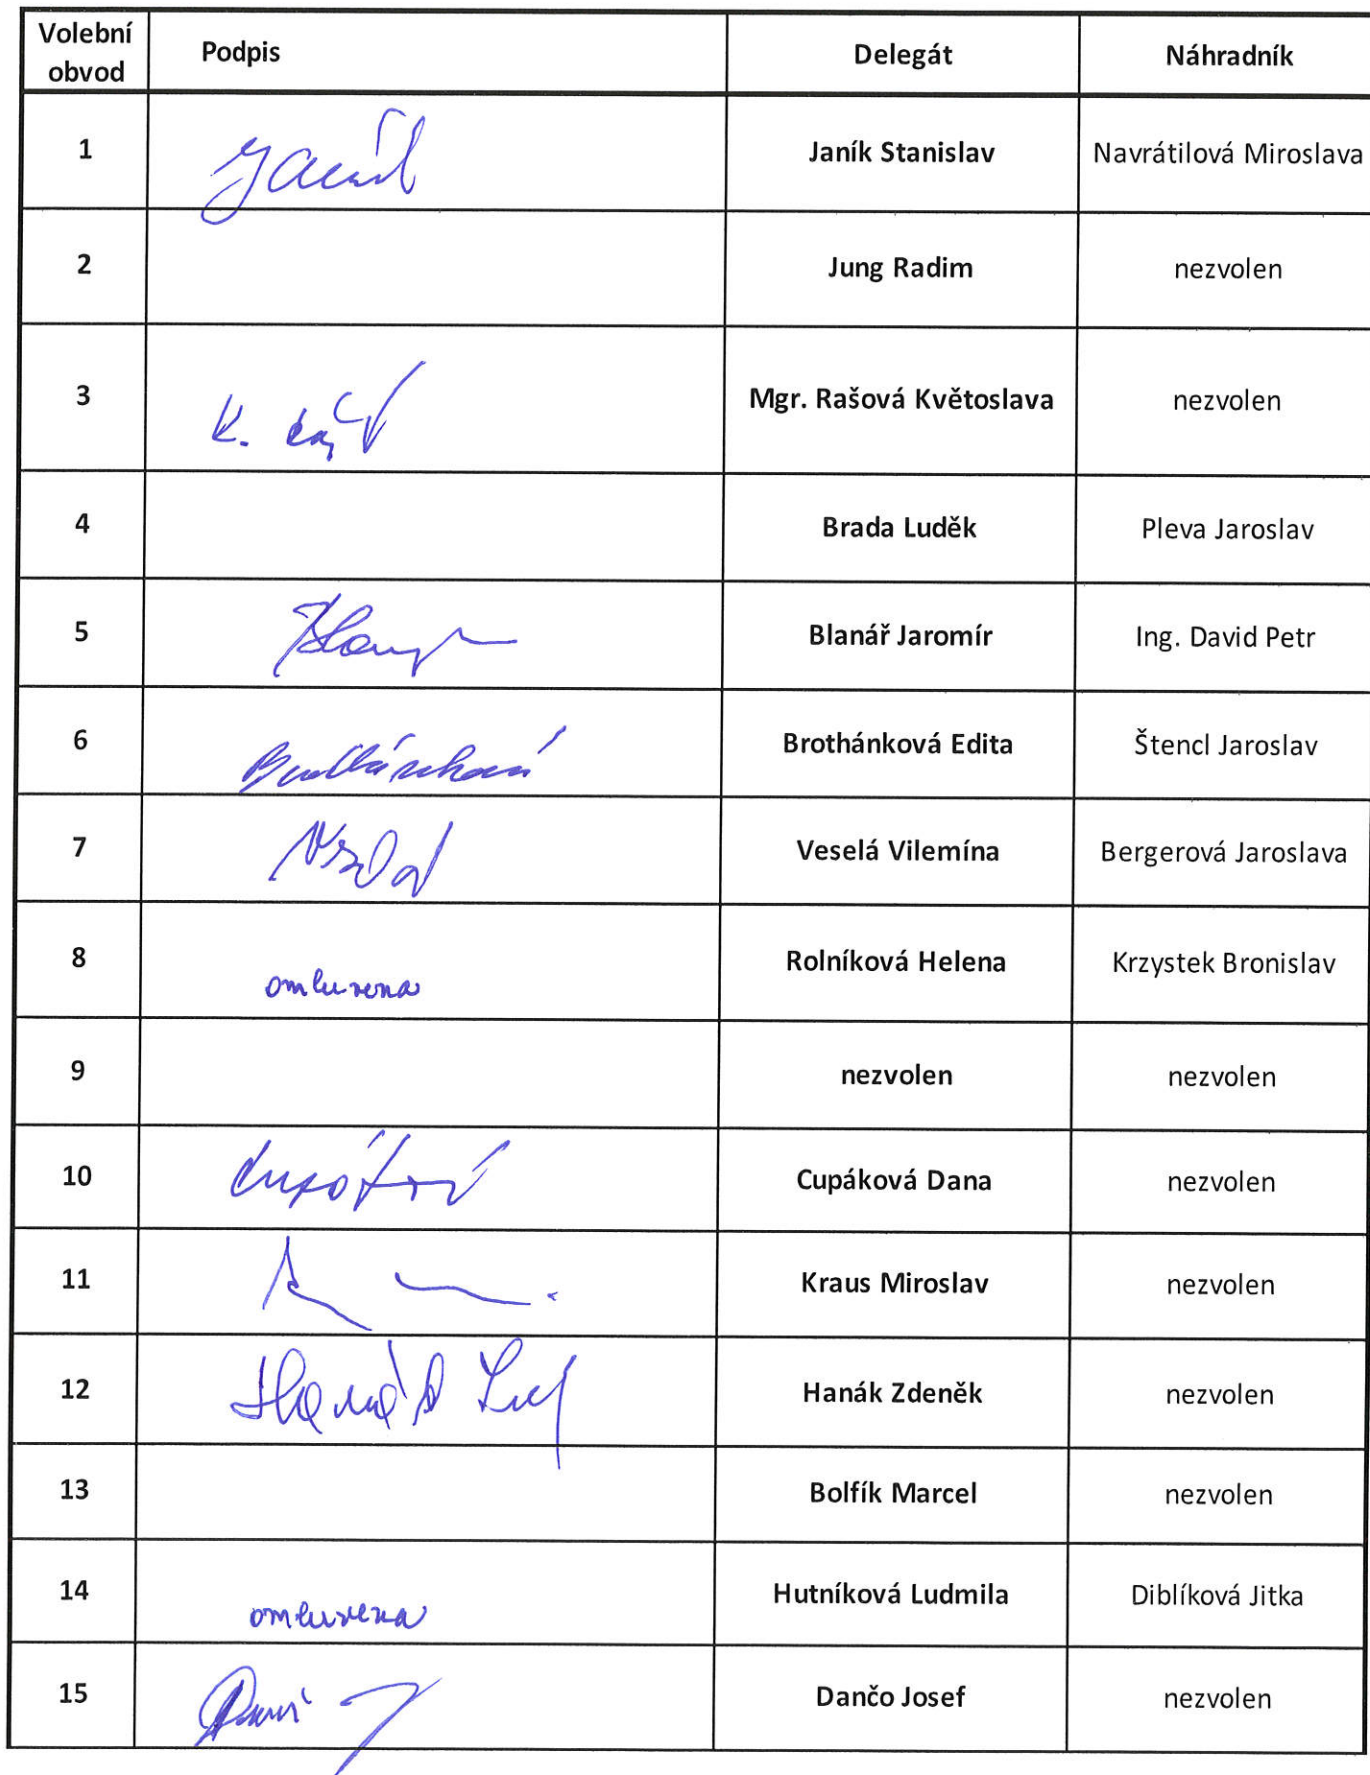 Volební obvod Podpis Delegát Náhradník
1 Janík Janík Stanislav Navrátilová Miroslava
2 Jung Radim nezvolen
3 K. Mgr. Rašová Květoslava nezvolen
4 Brada Luděk Pleva Jaroslav
5 Blanář Jaromír Ing. David Petr
6 Brothánková Brothánková Edita Štencl Jaroslav
7 Veselá Vilemína Bergerová Jaroslava
8 omluvena Rolníková Helena Krzystek Bronislav
9 nezvolen nezvolen
10 Cupáková Dana nezvolen
11 Kraus Miroslav nezvolen
12 Hanák Hanák Zdeněk nezvolen
13 Bolfík Marcel nezvolen
14 omluvena Hutníková Ludmila Diblíková Jitka
15 Dančo Josef nezvolen